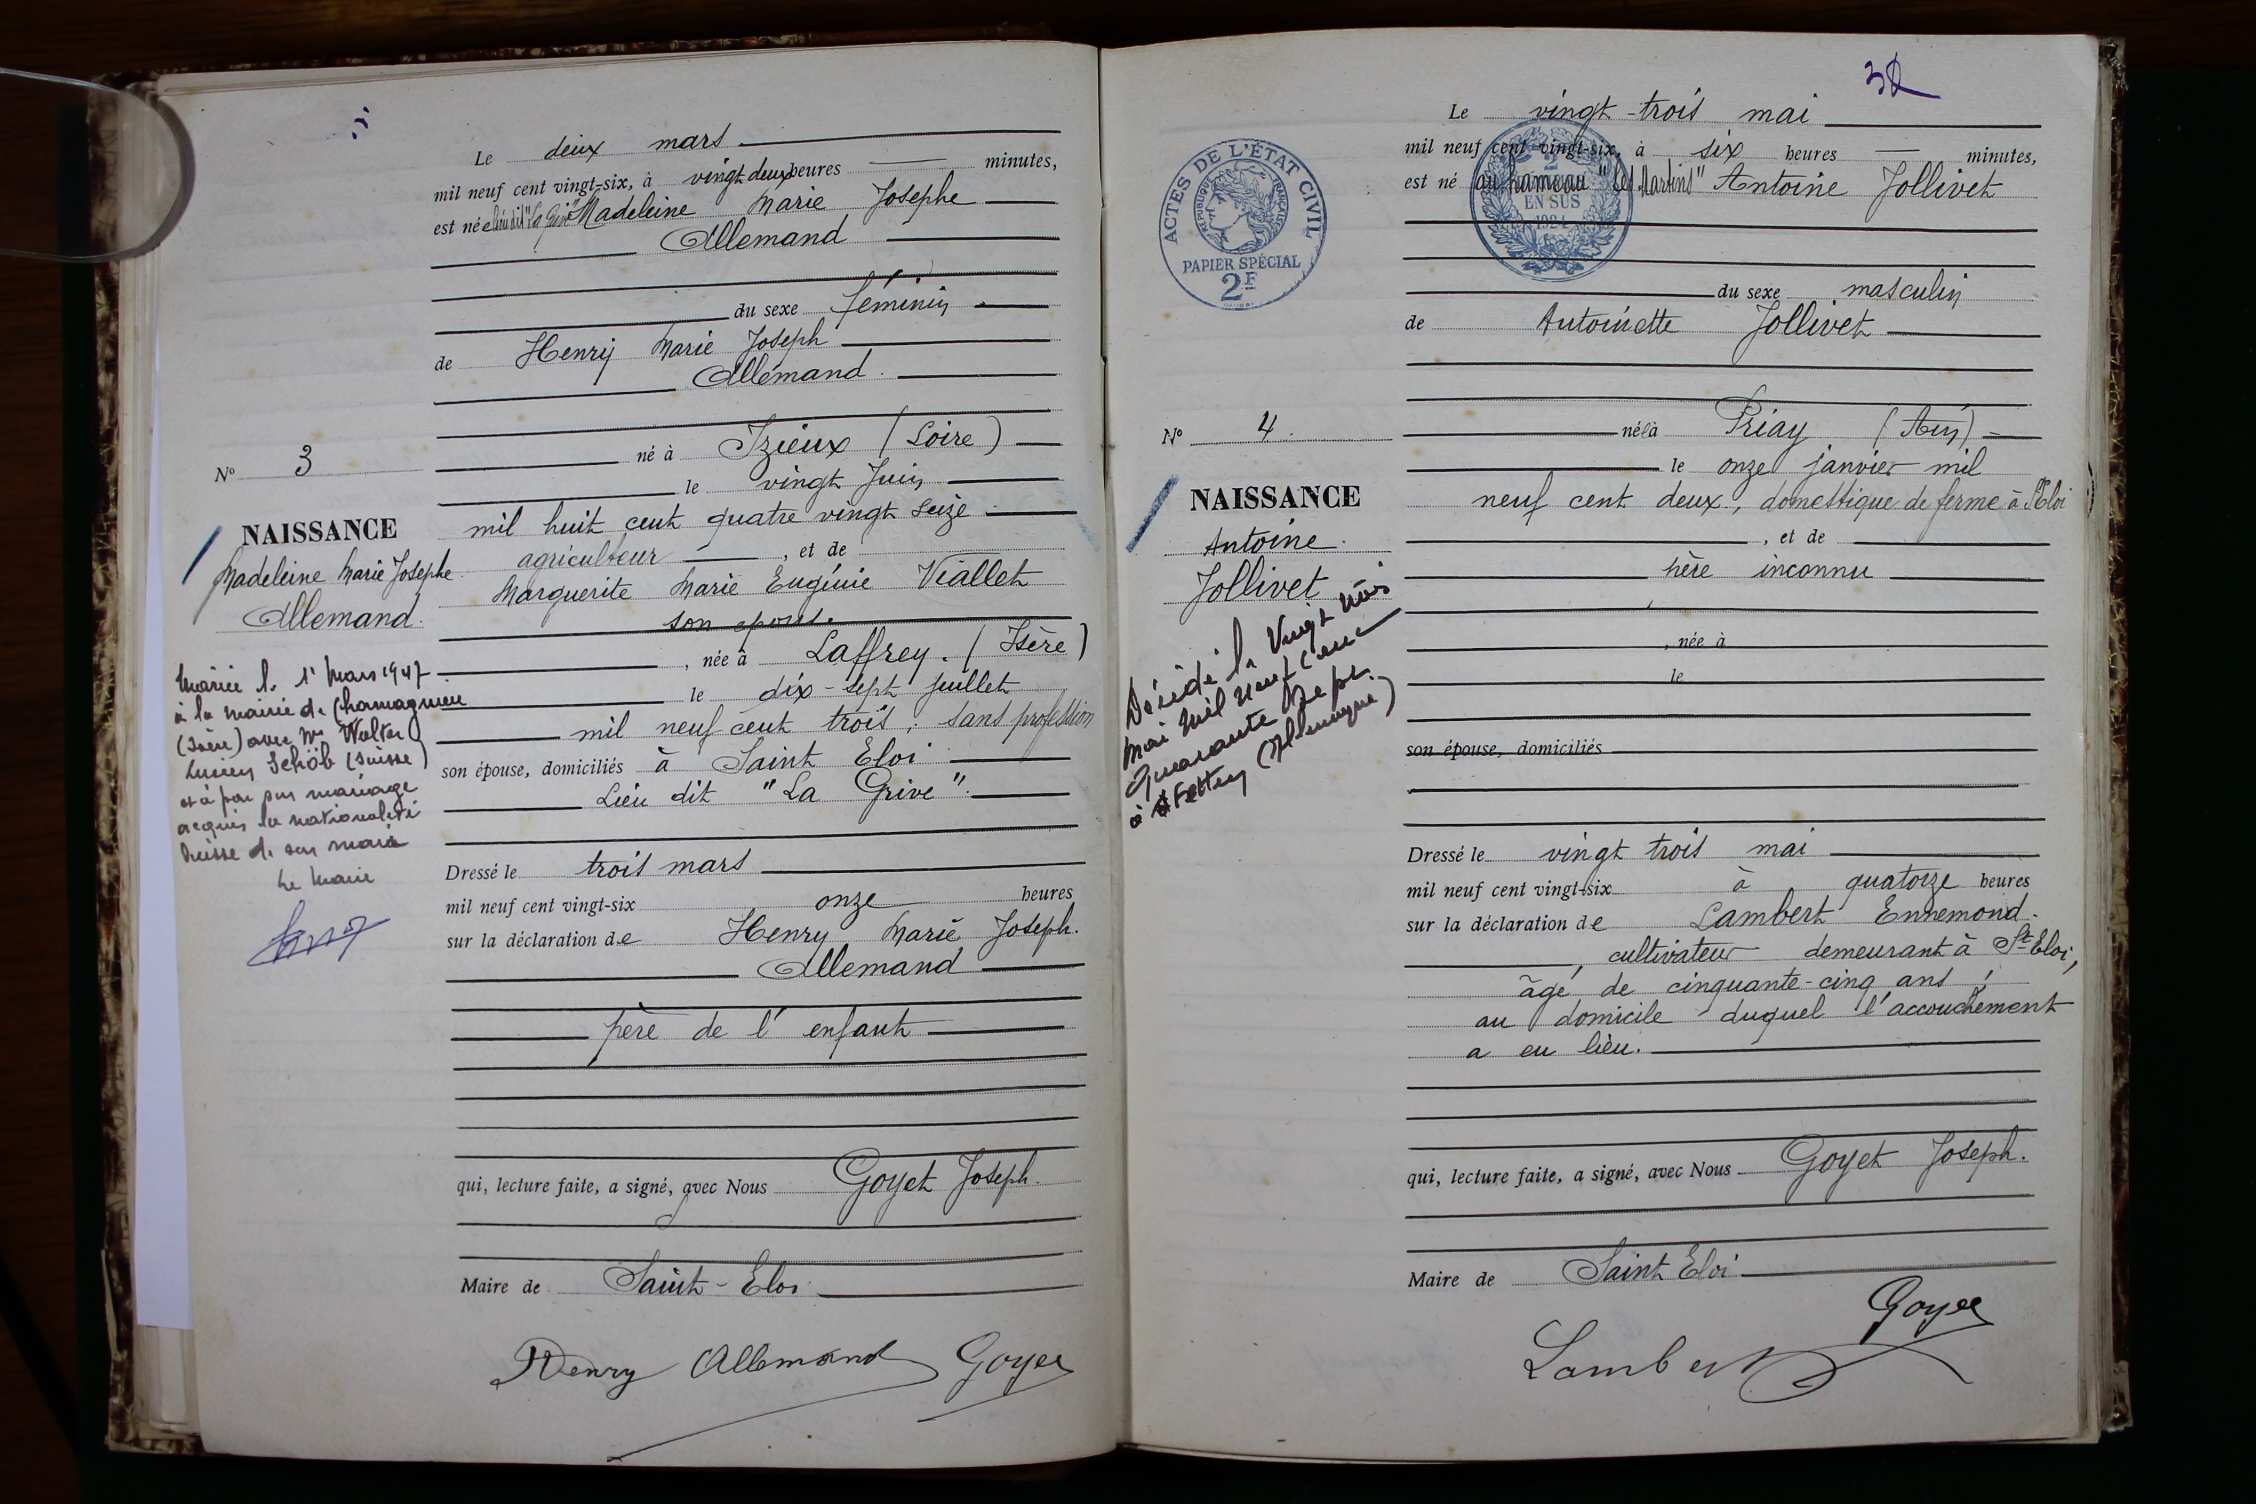 Le deux mars
mil neuf cent vingt-six, à vingt deux heures minutes,
est née lieu dit "La Grive" Madeleine Marie Josephe
Allemand
du sexe féminin
de Henry Marie Joseph
Allemand.
né à Izieux (Loire)
le vingt Juin
mil huit cent quatre vingt seize
agriculteur, et de
Marguerite Marie Eugénie Viallet
son epouse.
, née à Laffrey. (Isère)
le dix-sept juillet
mil neuf cent trois, sans profession
son épouse, domiciliés à Saint Eloi
Lieu dit "La Grive".
Dressé le trois mars
mil neuf cent vingt-six onze heures
sur la déclaration de Henry Marie Joseph.
Allemand
père de l'enfant
qui, lecture faite, a signé, avec Nous Goyet Joseph.
Maire de Saint-Eloi
Henry Allemand Goyet
N° 3
NAISSANCE
Madeleine Marie Josephe
Allemand.
Mariée le 1er Mars 1947
à la mairie de Chamagnieu
(Isère) avec Mr Walter
Lucien Schöb (Suisse)
et à par son mariage
acquis la nationalité
Suisse de son mari
Le Maire
32
Le vingt-trois mai
mil neuf cent vingt-six, à six heures minutes,
est né au hameau "Les Martins" Antoine Jollivet
du sexe masculin
de Antoinette Jollivet
née à Priay (Ain)
le onze janvier mil
neuf cent deux, domestique de ferme à St Eloi
, et de
père inconnu
, née à
le
son épouse, domiciliés
Dressé le vingt trois mai
mil neuf cent vingt-six à quatorze heures
sur la déclaration de Lambert Ennemond.
, cultivateur demeurant à St-Eloi,
âgé de cinquante-cinq ans,
au domicile duquel l'accouchement
a eu lieu.
qui, lecture faite, a signé, avec Nous Goyet Joseph.
Maire de Saint Eloi
Goyet
Lambert
ACTES DE L'ÉTAT CIVIL
RÉPUBLIQUE FRANÇAISE
PAPIER SPÉCIAL
2F
2
EN SUS
1924
N° 4.
NAISSANCE
Antoine.
Jollivet
Décédé le Vingt trois
Mai Mil Neuf Cent
Quarante Sept
à (Allemagne)